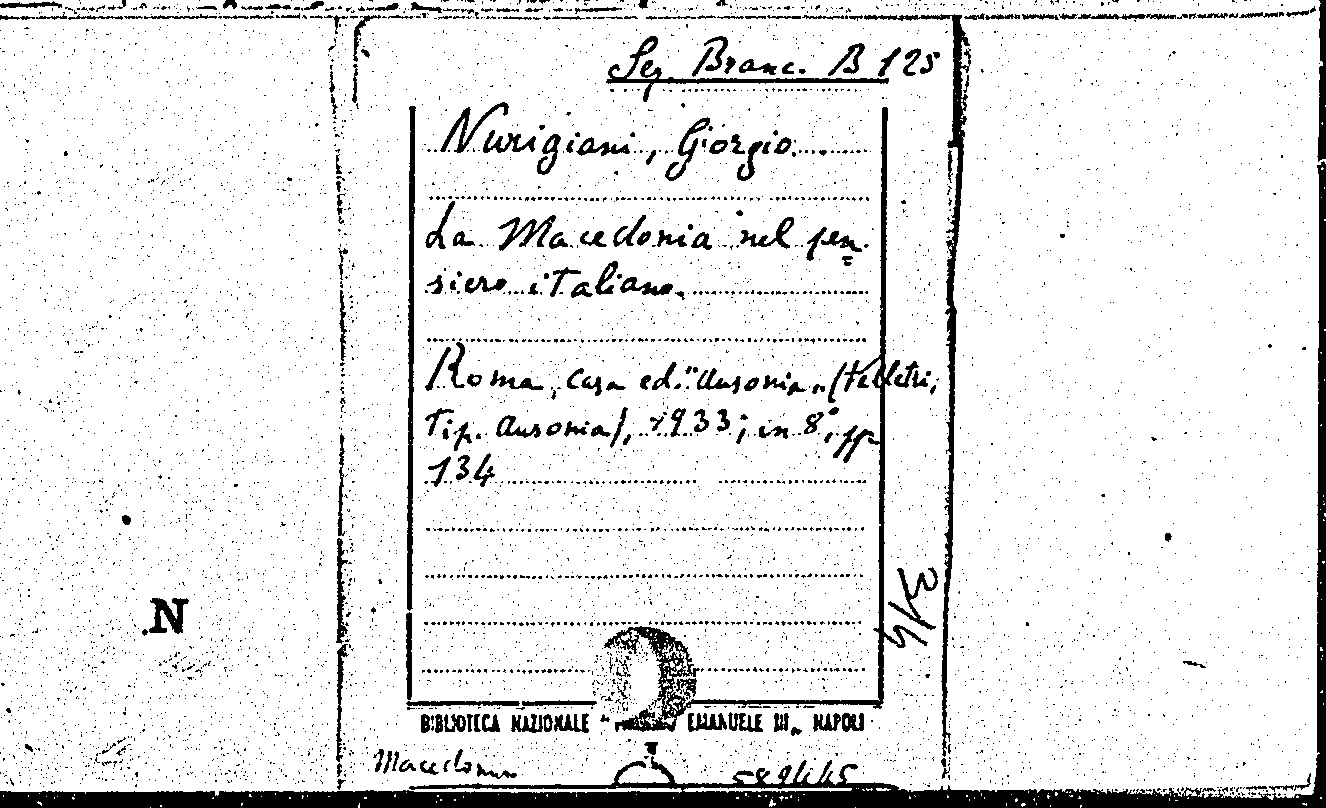 Sez. Branc. B 125
Nurigiani, Giorgio.
La Macedonia nel pen=
siero italiano.
Roma, Casa ed. "Ausonia„ (Velletri,
Tip. Ausonia), 1933; in 8°, pp.
134
3/4
N
BIBLIOTECA NAZIONALE " EMANUELE III„ NAPOLI
Macedonia